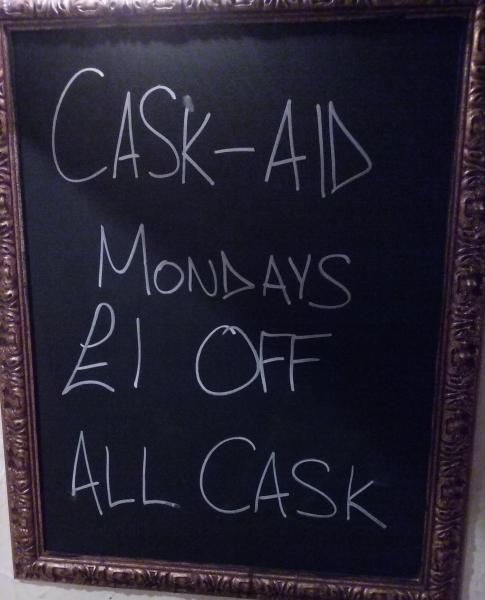 CASK-AID
MONDAYS
£1 OFF
ALL CASK